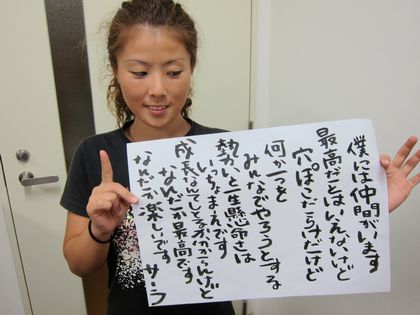 僕には仲間がいます
最高だとはいえないけど
穴ぼこだらけだけど
何か一つを
みんなでやろうとする
熱さと一生懸命さは
いっちょまえです
成長なんてしてるか分からんけど
なんだか最高です
なんだか楽しいです サラ